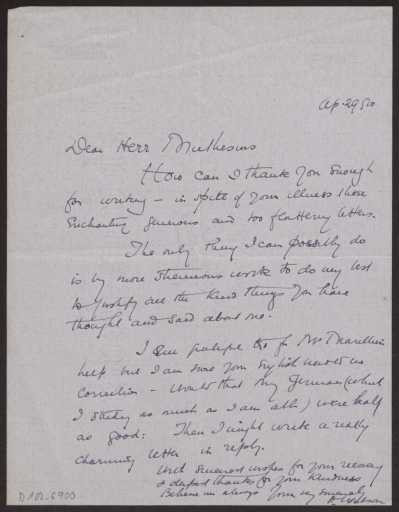 Ap. 29 50
Dear Herr Muthesius
How can I thank you enough
for writing – in spite of your illness those
enchanting generous and too flattering letters.
The only thing I can possibly do
is by more strenuous work to do my best
to justify all the kind things you have
thought and said about me.
I am grateful for Mr
help but I am sure your English needs no
correction – Would that my German (which
I study as much as I am able) were half
as good: Then I might write a really
charming letter in reply.
With sincerest wishes for your recovery
& deepest thanks for your kindness
Believe me always yours very sincerely
D 102-6900